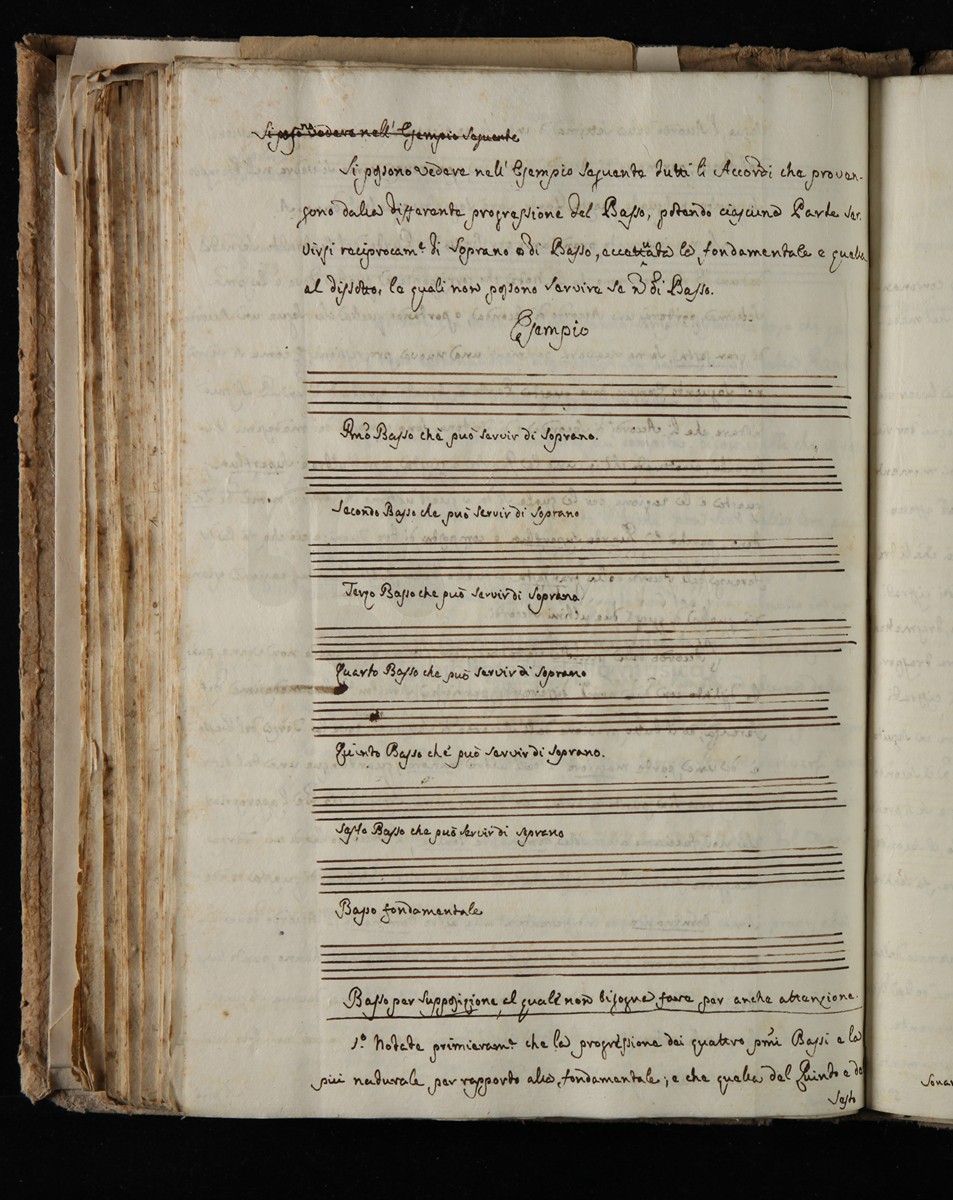 Si posono vedere nell' Esempio seguente
Si posono vedere nell' Esempio seguente tutti li Accordi che proven-
gono dalla differente progressione del Basso, potendo ciascuna Parte ser-
virsi reciprocam.e di Soprano o di Basso, eccettuata la fondamentale e quella
al disotto, le quali non possono servire se n di Basso.
Esempio
Pmo Basso che può servir di Soprano.
Secondo Basso che può servir di Soprano
Terzo Basso che può servir di Soprano
Quarto Basso che può servir di Soprano
Quinto Basso che può servir di Soprano.
Sesto Basso che può servir di soprano
Basso fondamentale
Basso per supposizione al quale non bisogna fare per anche attenzione.
1.o Notate primieram.e che la progressione dei quattro pmi Bassi e la
più naturale per rapporto alla fondamentale; e che quella del Quinto e del
Sesto